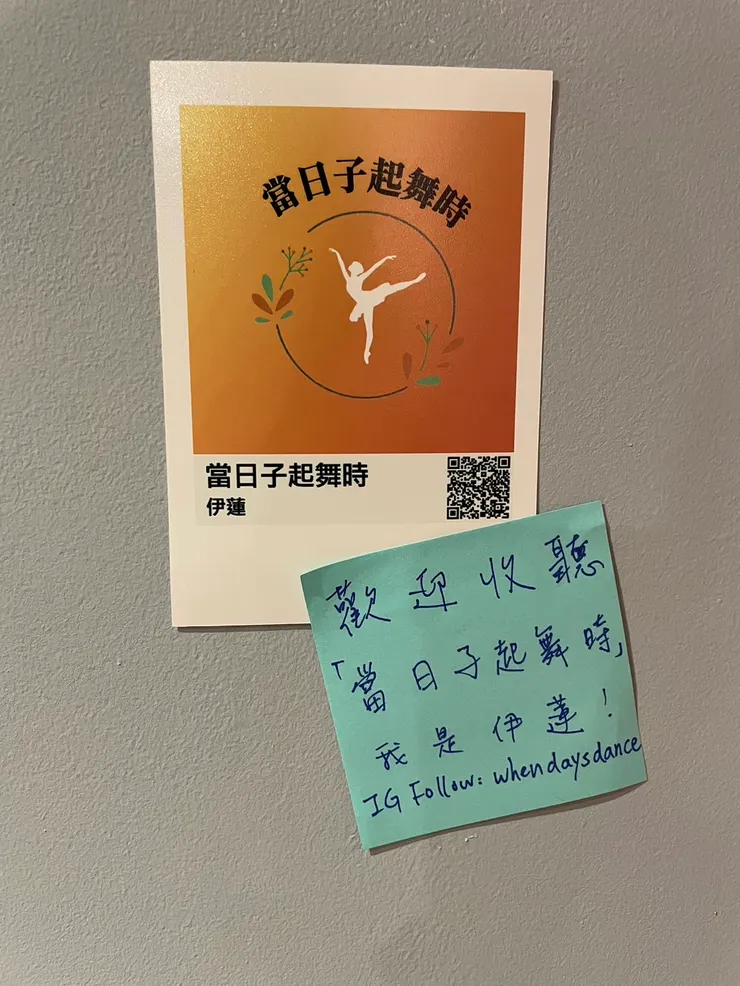 當日子起舞時
當日子起舞時
伊蓮
歡迎收聽
「當日子起舞時」
我是伊蓮！
IG Follow: whendaysdance